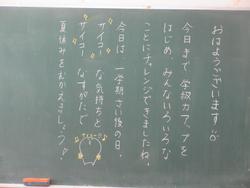 おはようございます
今日まで学級力アップを
はじめ、みんないろいろな
ことにチャレンジできましたね。
今日は一学期さい後の日。
サイコーな気持ちと
サイコーなすがたで
夏休みをむかえましょう♪